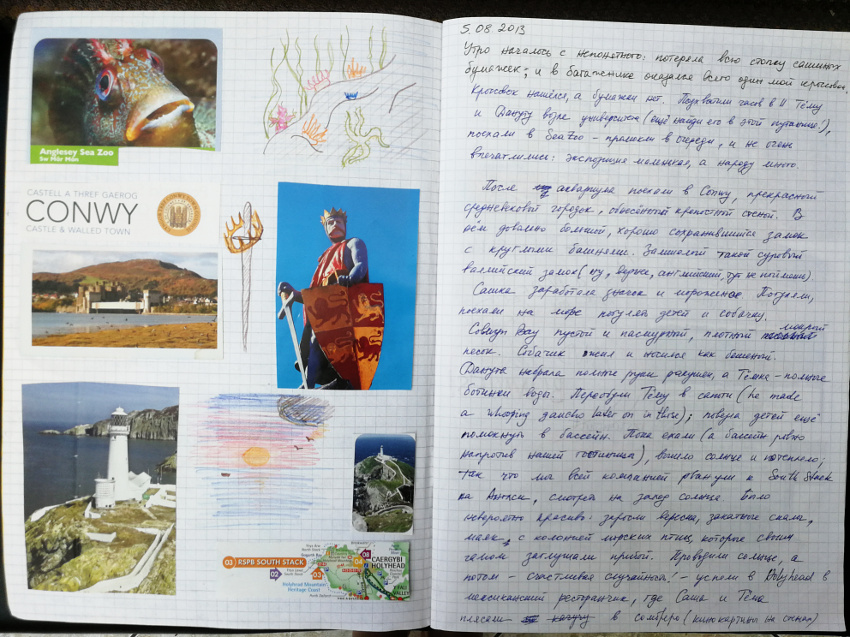 Anglesey Sea Zoo
Sw Môr Môn
CASTELL A THREF GAEROG
CONWY
CASTLE & WALLED TOWN
03 RSPB SOUTH STACK
02
03
04
08
CAERGYBI
HOLYHEAD
Holyhead Mountain
Heritage Coast
VALLEY
5.08.2013
Утро началось с непонятного: потеряла всю стопку сашиных
бумажек; и в багажнике оказался всего один мой кроссовок.
Кроссовок нашёлся, а бумажки нет. Подхватили часов в 11 Тёму
и Дануту возле университа (ещё найди его в этой путанице!),
поехали в SeaZoo – промокли в очереди, и не очень
впечатлились: экспозиция маленькая, а народу много.
После аквариума поехали в Conwy, прекрасный
средневековый городок, обнесённый крепостной стеной. В
нём довольно большой, хорошо сохранившийся замок
с круглыми башнями. Замшелый такой суровый
валлийский замок (ну, вернее, английский, тут не поймёшь).
Сашка заработала значок и мороженое. Погуляли,
поехали на море погулять детей и собачку.
Conwy Bay пустой и пасмурный, плотный мокрый
песок. Собачик ожил и носился как бешеный.
Данута набрала полные руки ракушек, а Тёмка – полные
ботинки воды. Переобули Тёму в сапоги (he made
a whooping dance later on in them); повезла детей ещё
помокнуть в бассейн. Пока ехали (а бассейн ровно
напротив нашей гостиницы), вышло солнце и потеплело;
так что мы всей компанией рванули к South Stack
на Anglesey, смотреть на заход солнца. Было
невероятно красиво: заросли вереска, закатные скалы,
маяк, с колонией морских птиц, которые своим
гамом заглушали прибой. Проводили солнце, а
потом – счастливая случайность! – успели в Holyhead в
мексиканский ресторанчик, где Саша и Тёма
плясали в сомбреро (кинокартины на стенах)